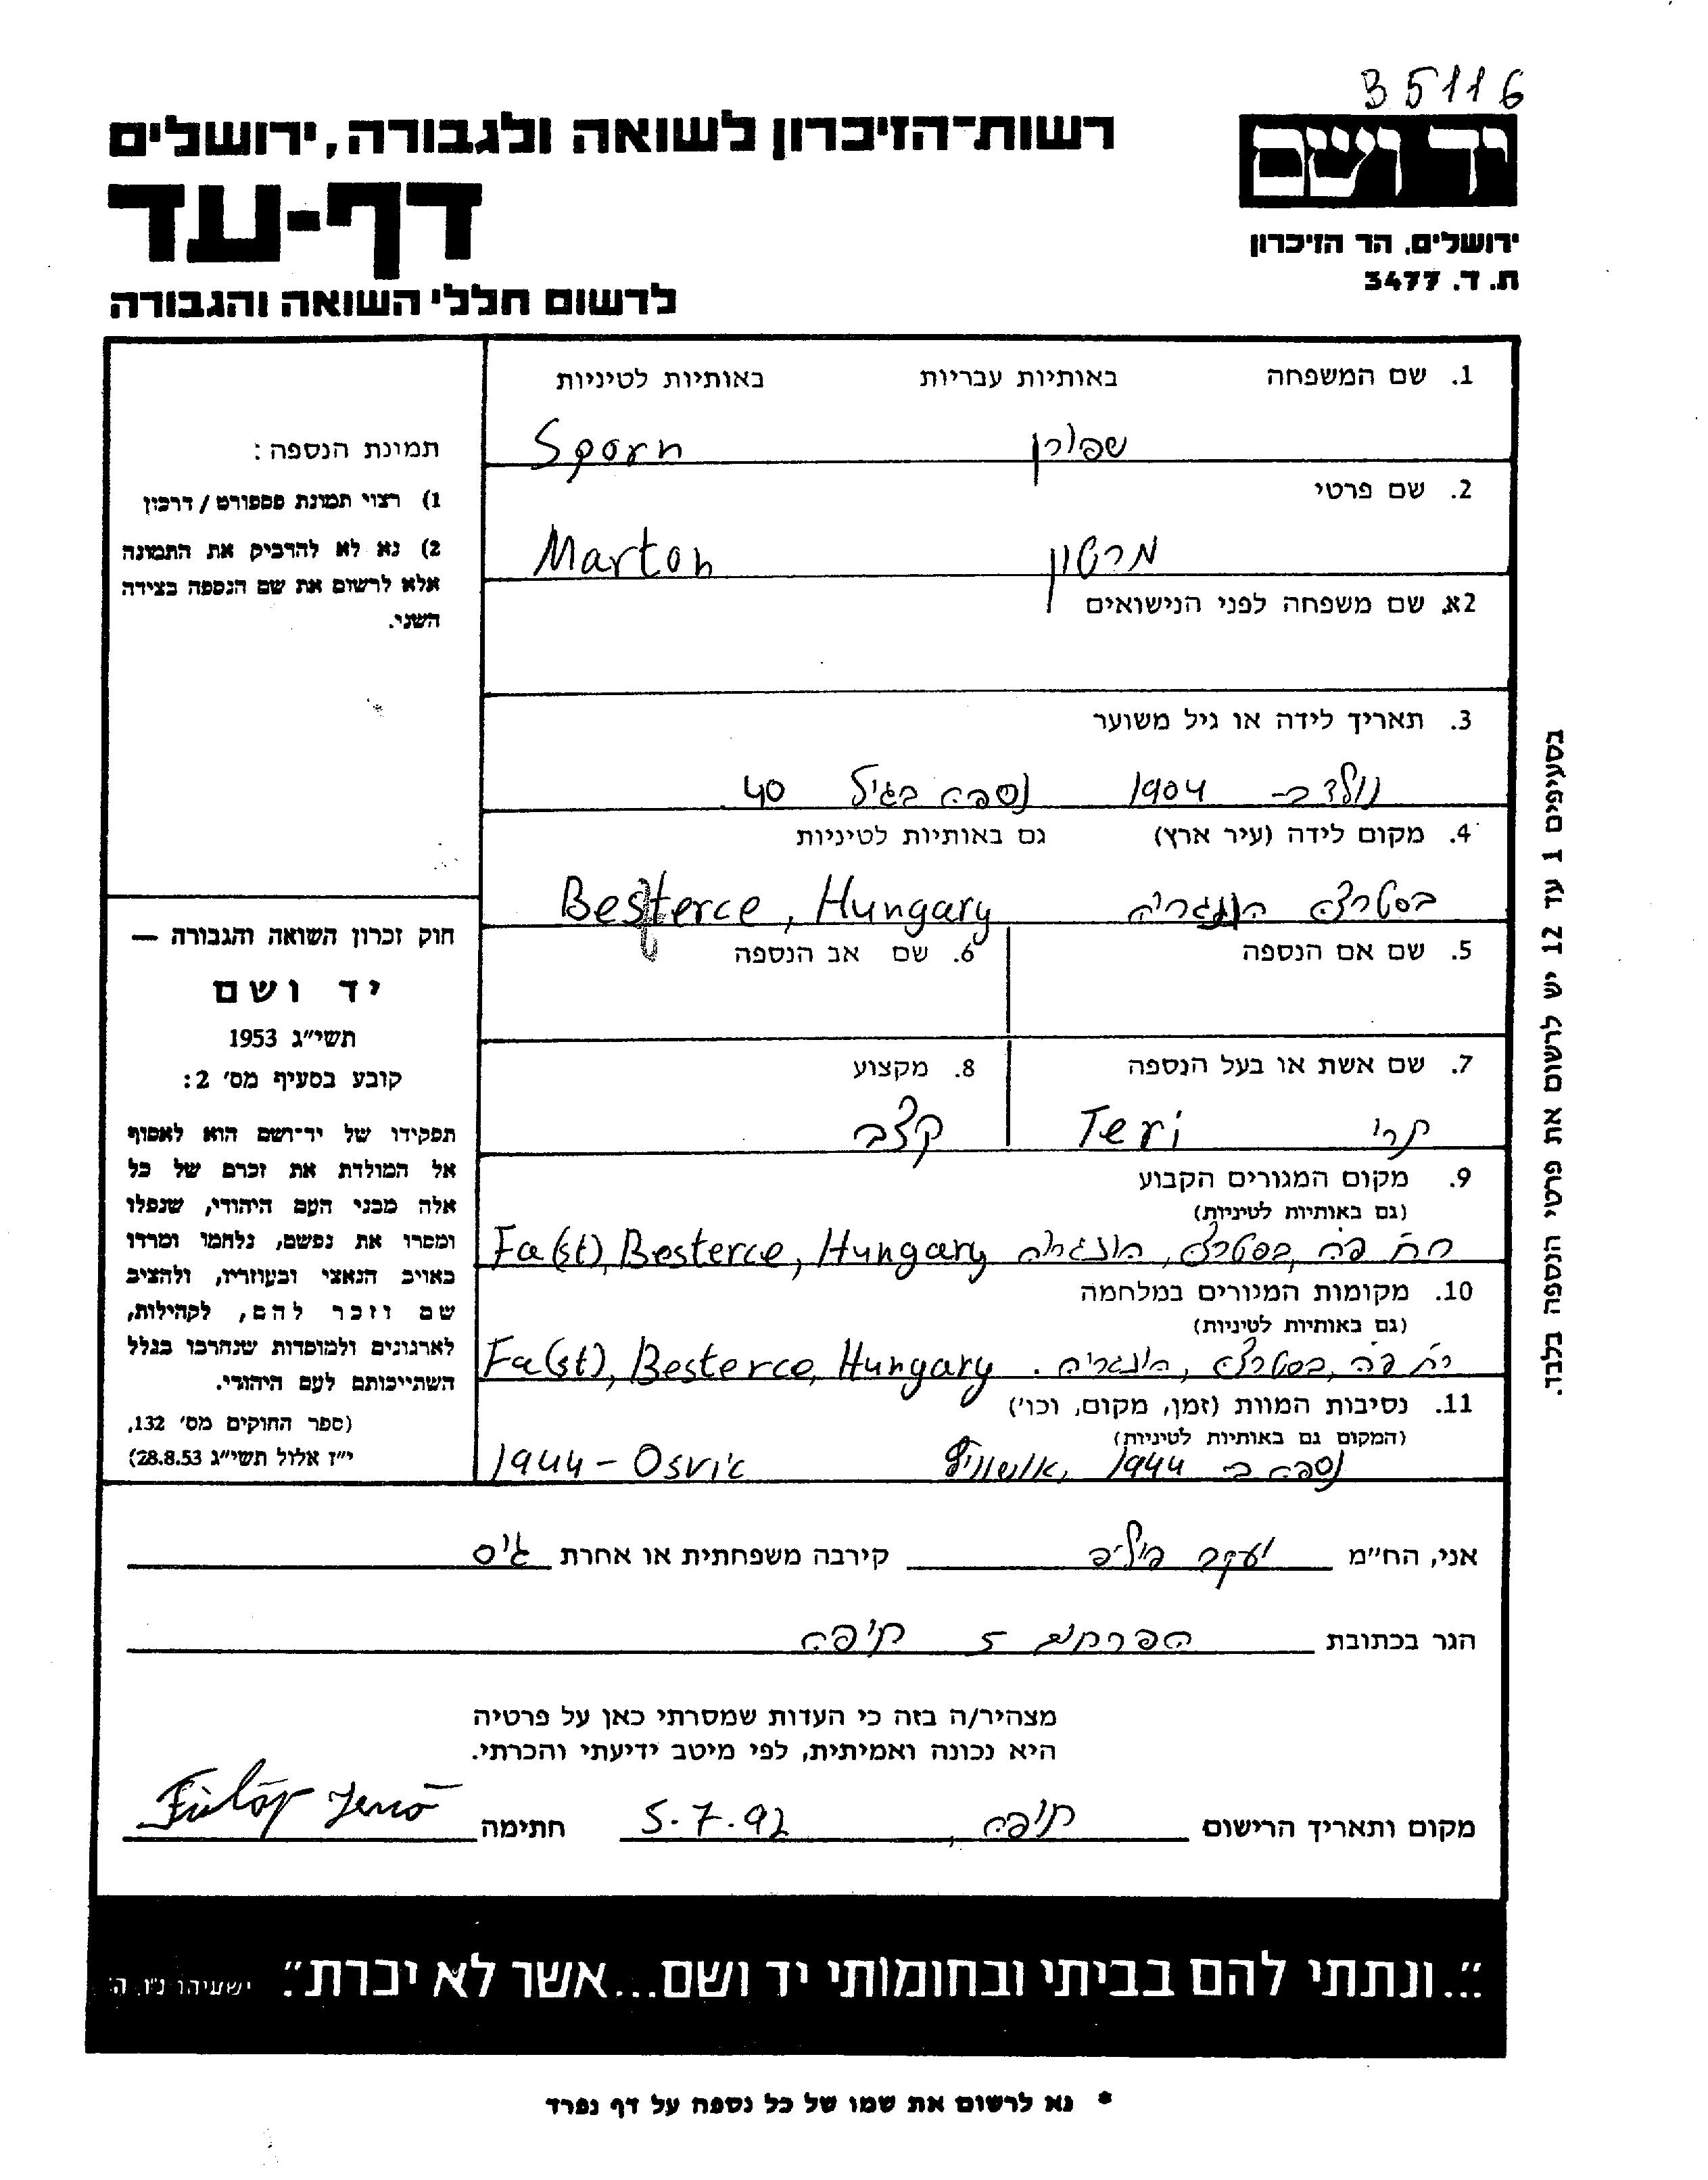 35116
יד ושם
ירושלים, הר הזיכרון
ת. ד. 3477
רשות־הזיכרון לשואה ולגבורה, ירושלים
דף-עד
לרשום חללי השואה והגבורה
1. שם המשפחה באותיות עבריות באותיות לטיניות
שפורן Sporn
2. שם פרטי
מרטון Marton
2א. שם משפחה לפני הנישואים
3. תאריך לידה או גיל משוער
נולד ב- 1904 נספה בגיל 40
4. מקום לידה (עיר ארץ) גם באותיות לטיניות
בסטרצה הונגריה Besterce, Hungary
5. שם אם הנספה 6. שם אב הנספה
7. שם אשת או בעל הנספה 8. מקצוע
תרי Teri קצב
9. מקום המגורים הקבוע
(גם באותיות לטיניות)
רח' פה, בסטרצה, הונגריה Fa (st), Besterce, Hungary
10. מקומות המגורים במלחמה
(גם באותיות לטיניות)
רח' פה, בסטרצה, הונגריה. Fa (st), Besterce, Hungary
11. נסיבות המוות (זמן, מקום, וכו')
(המקום גם באותיות לטיניות)
נספה ב- 1944, אושוויץ 1944 - Osvic
תמונת הנספה:
1) רצוי תמונת פספורט / דרכון
2) נא לא להדביק את התמונה
אלא לרשום את שם הנספה בצידה
השני.
חוק זכרון השואה והגבורה —
יד ושם
תשי"ג 1953
קובע בסעיף מס' 2:
תפקידו של יד־ושם הוא לאסוף
אל המולדת את זכרם של כל
אלה מבני העם היהודי, שנפלו
ומסרו את נפשם, נלחמו ומרדו
באויב הנאצי ובעוזריו, ולהציב
שם וזכר להם, לקהילות,
לארגונים ולמוסדות שנחרבו בגלל
השתייכותם לעם היהודי.
(ספר החוקים מס' 132,
י"ז אלול תשי"ג 28.8.53)
בסעיפים 1 עד 12 יש לרשום את פרטי הנספה בלבד.
אני, הח"מ יעקב פיליפ קירבה משפחתית או אחרת גיס
הגר בכתובת הפרחים 5 חיפה
מצהיר/ה בזה כי העדות שמסרתי כאן על פרטיה
היא נכונה ואמיתית, לפי מיטב ידיעתי והכרתי.
מקום ותאריך הרישום חיפה, 5.7.92 חתימה Fülöp Jenő
"...ונתתי להם בביתי ובחומותי יד ושם...אשר לא יכרת". ישעיהו נ"ו, ה'
* נא לרשום את שמו של כל נספה על דף נפרד